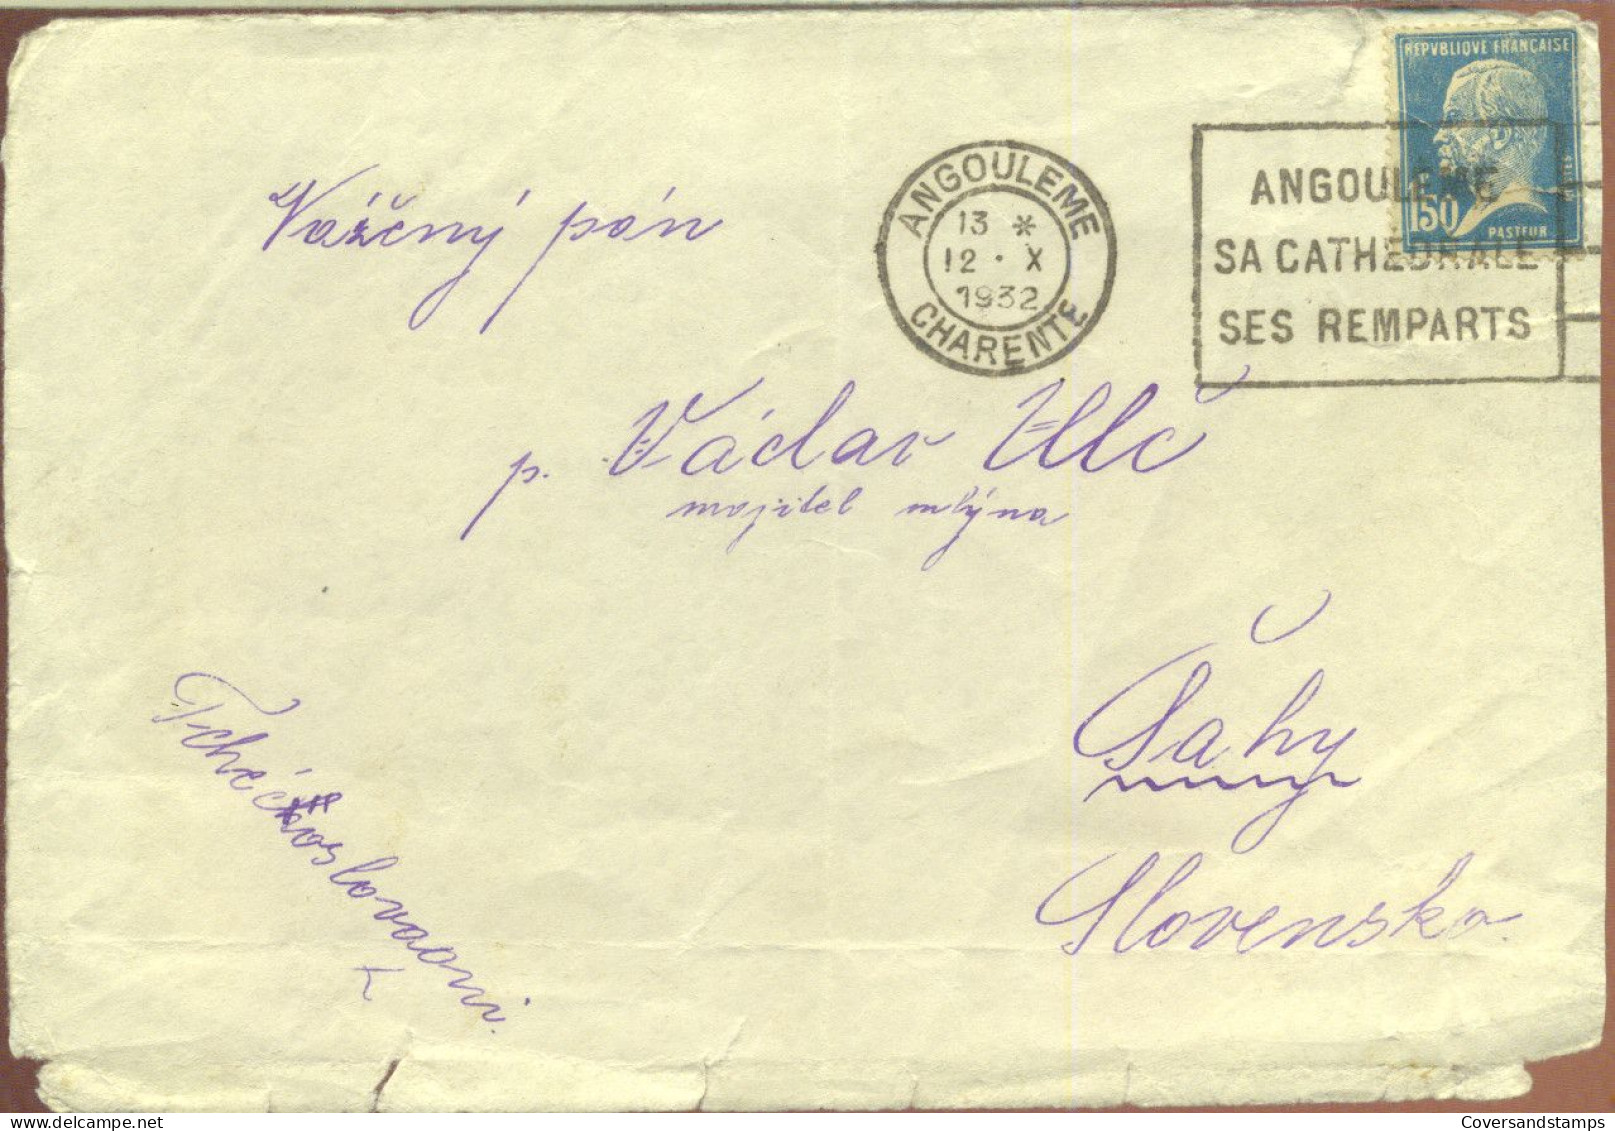 REPVBLIQVE FRANÇAISE
150
PASTEUR
ANGOULEME
13 *
12 · X
1932
CHARENTE
ANGOULEME
SA CATHEDRALE
SES REMPARTS
Vážený pán
p. Václav Vlč
majitel mlýna
Šahy
Slovensko
Coversandstamps